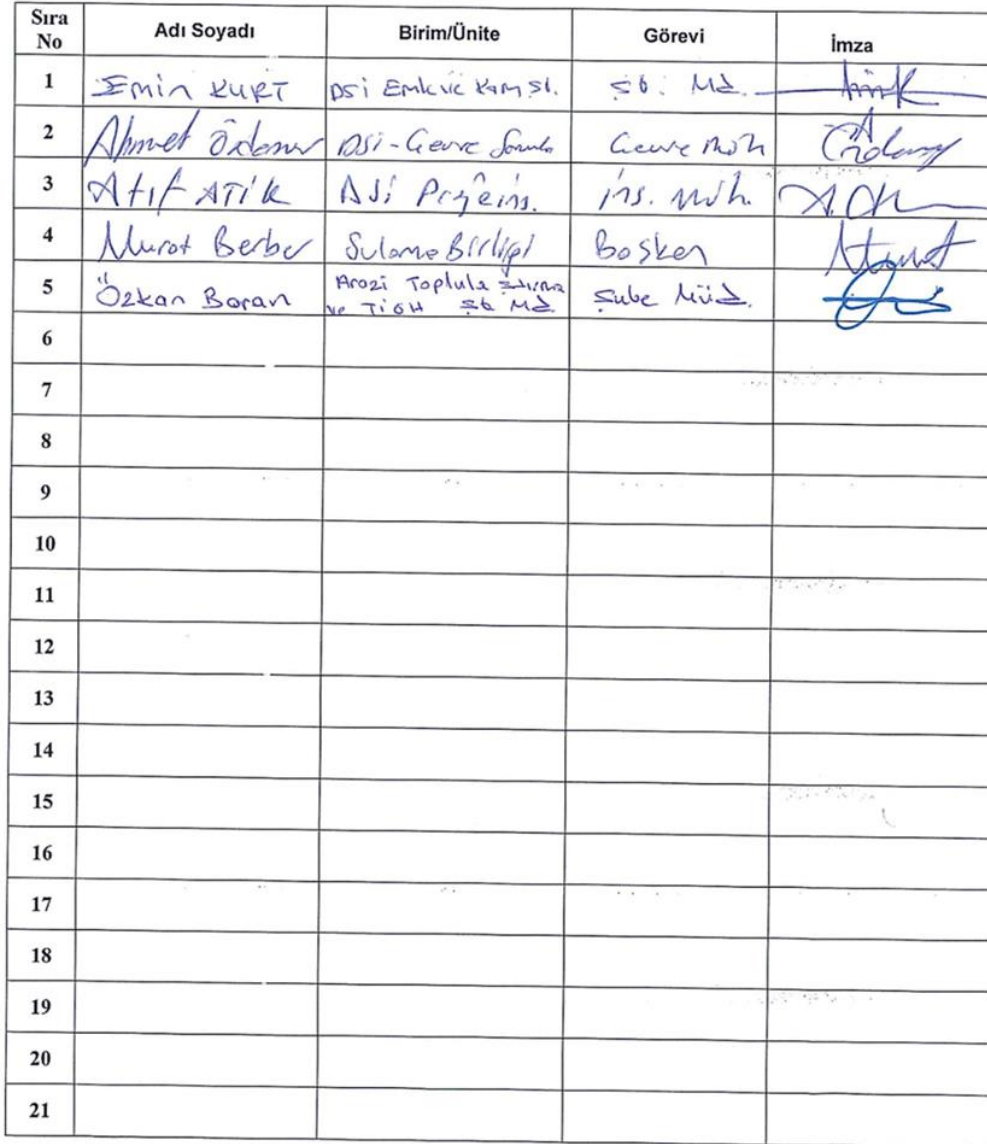 Sıra No Adı Soyadı Birim/Ünite Görevi İmza
1 Emin KURT DSİ Emlk ve Kam Şb. Md.
2 Ahmet DSİ - Çevre Çevre Müh
3 Atıf ATİK DSİ Proje ins. ins. Müh.
4 Murat Berber Sulama Birliği Başkan
5 Özkan Boran Arazi Toplulaştırma ve TİGH Şb Md. Şube Müd.
6
7
8
9
10
11
12
13
14
15
16
17
18
19
20
21